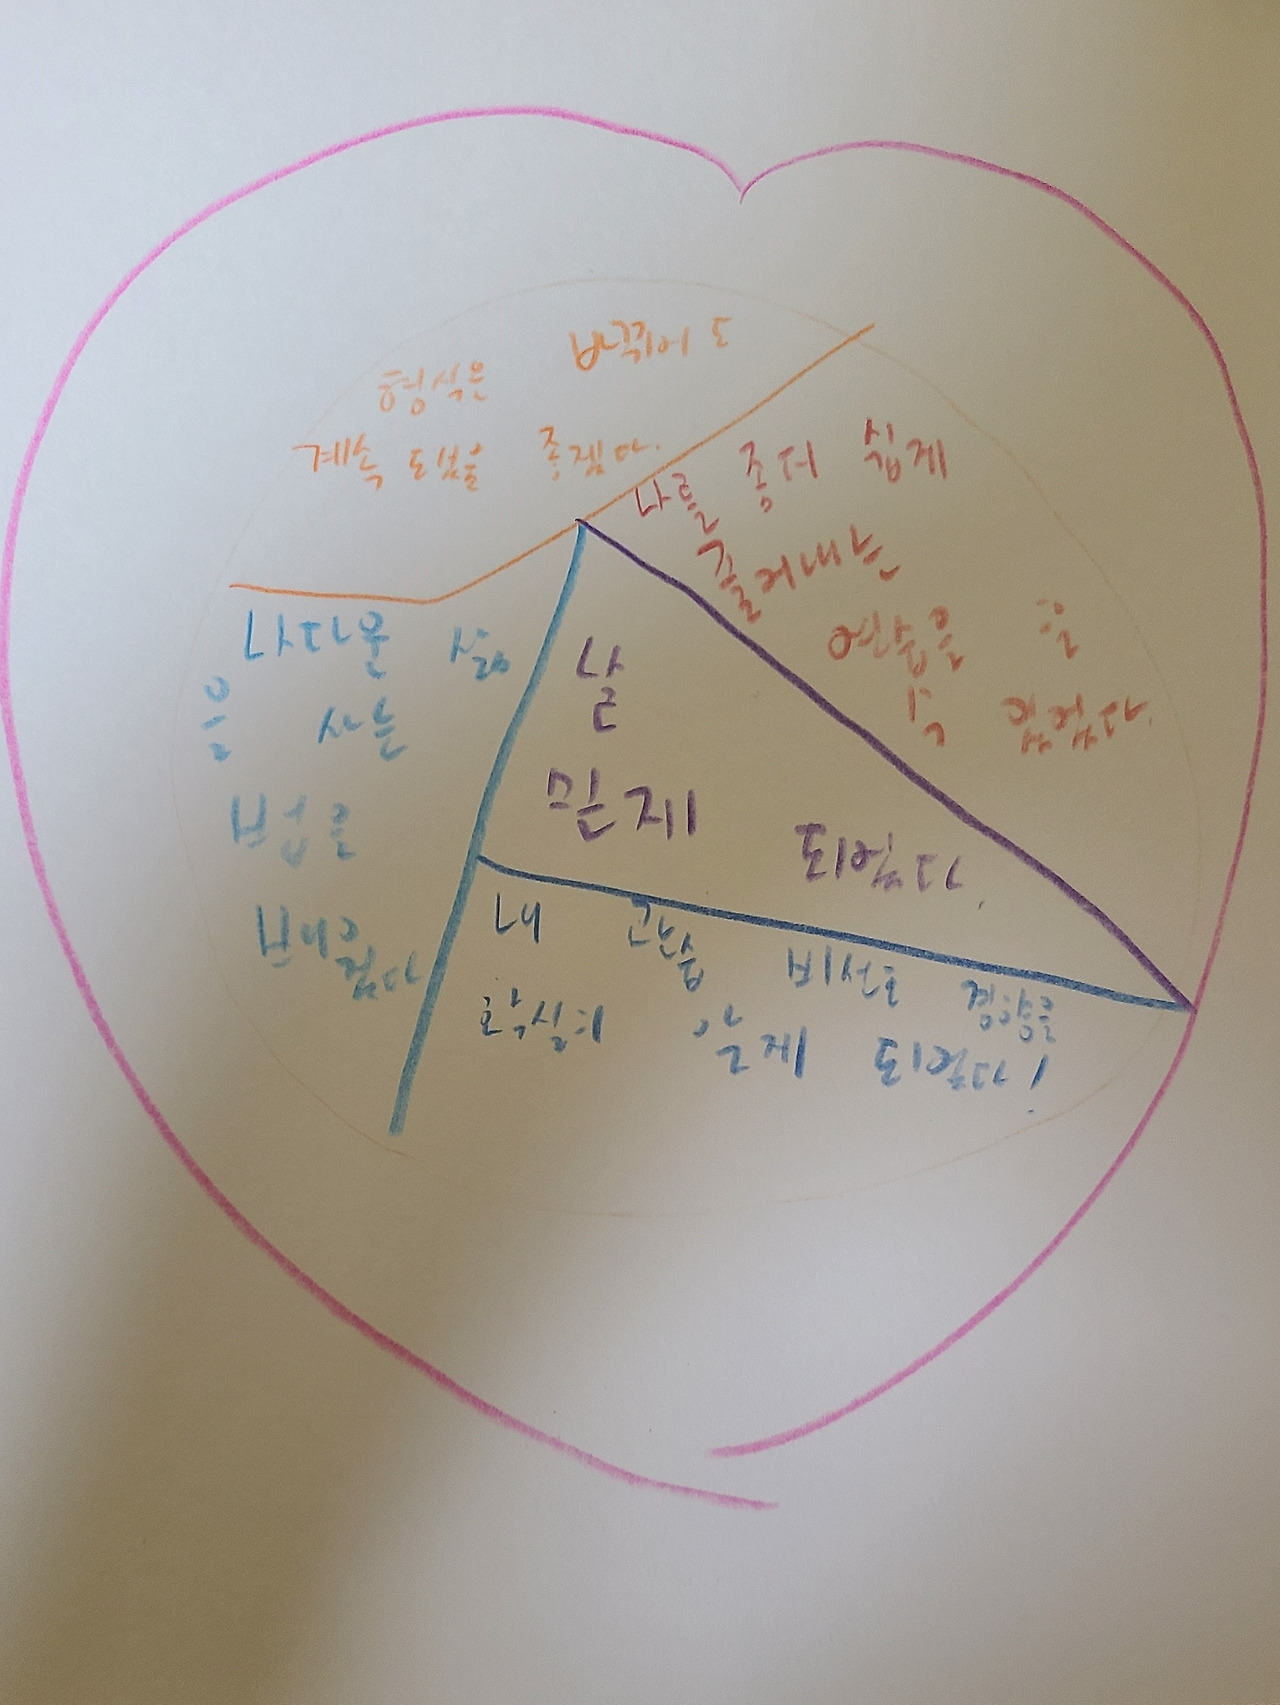 형식은 바뀌어도
계속 도움을 좋겠다.
나를 좀더 쉽게
꺼내는
연습을 할
수 있었다.
나다운 삶
을 사는
법을
배웠다
날
믿게 되었다.
내 관습 비선호 경향을
확실히 알게 되었다!